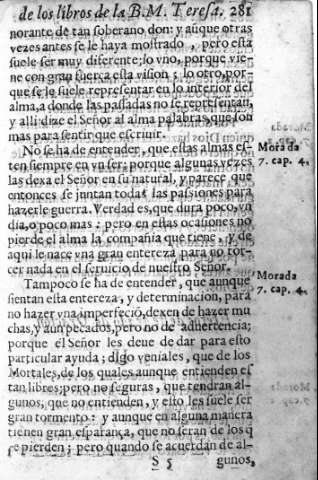 de los libros de la B. M. Teresa. 281
norante de tan soberano don: y aũque otras
vezes antes se le haya mostrado, pero esta
suele ser muy diferente; lo vno, porque vie-
ne con gran fuerça esta vision; lo otro, por-
que se le suele representar en lo interior del
alma, a donde las passadas no se representan,
y alli dize el Señor al alma palabras, que son
mas para sentir que escriuir.
No se ha de entender, que estas almas es-
ten siempre en vn ser; porque algunas vezes
las dexa el Señor en su natural, y parece que
entonces se juntan todas las passiones para
hazerle guerra. Verdad es, que dura poco, vn
dia, o poco mas; pero en estas ocasiones no
pierde el alma la compañia que tiene, y de
aqui le nace vna gran entereza para no tor-
cer nada en el seruicio de nuestro Señor.
Morada
7. cap. 4.
Tampoco se ha de entender, que aunque
sientan esta entereza, y determinacion, para
no hazer vna imperfeciõ, dexen de hazer mu
chas, y aun pecados, pero no de aduertencia;
porque el Señor les deue de dar para esto
particular ayuda; digo veniales, que de los
Mortales, de los quales aunque entienden es
tan libres; pero no seguras, que tendran al-
gunos, que no entienden, y esto les suele ser
gran tormento: y aunque en alguna manera
tienen gran esparança, que no seran de los q̃
se pierden; pero quando se acuerdan de al-
Morada
7. cap. 4.
S 5 gunos,